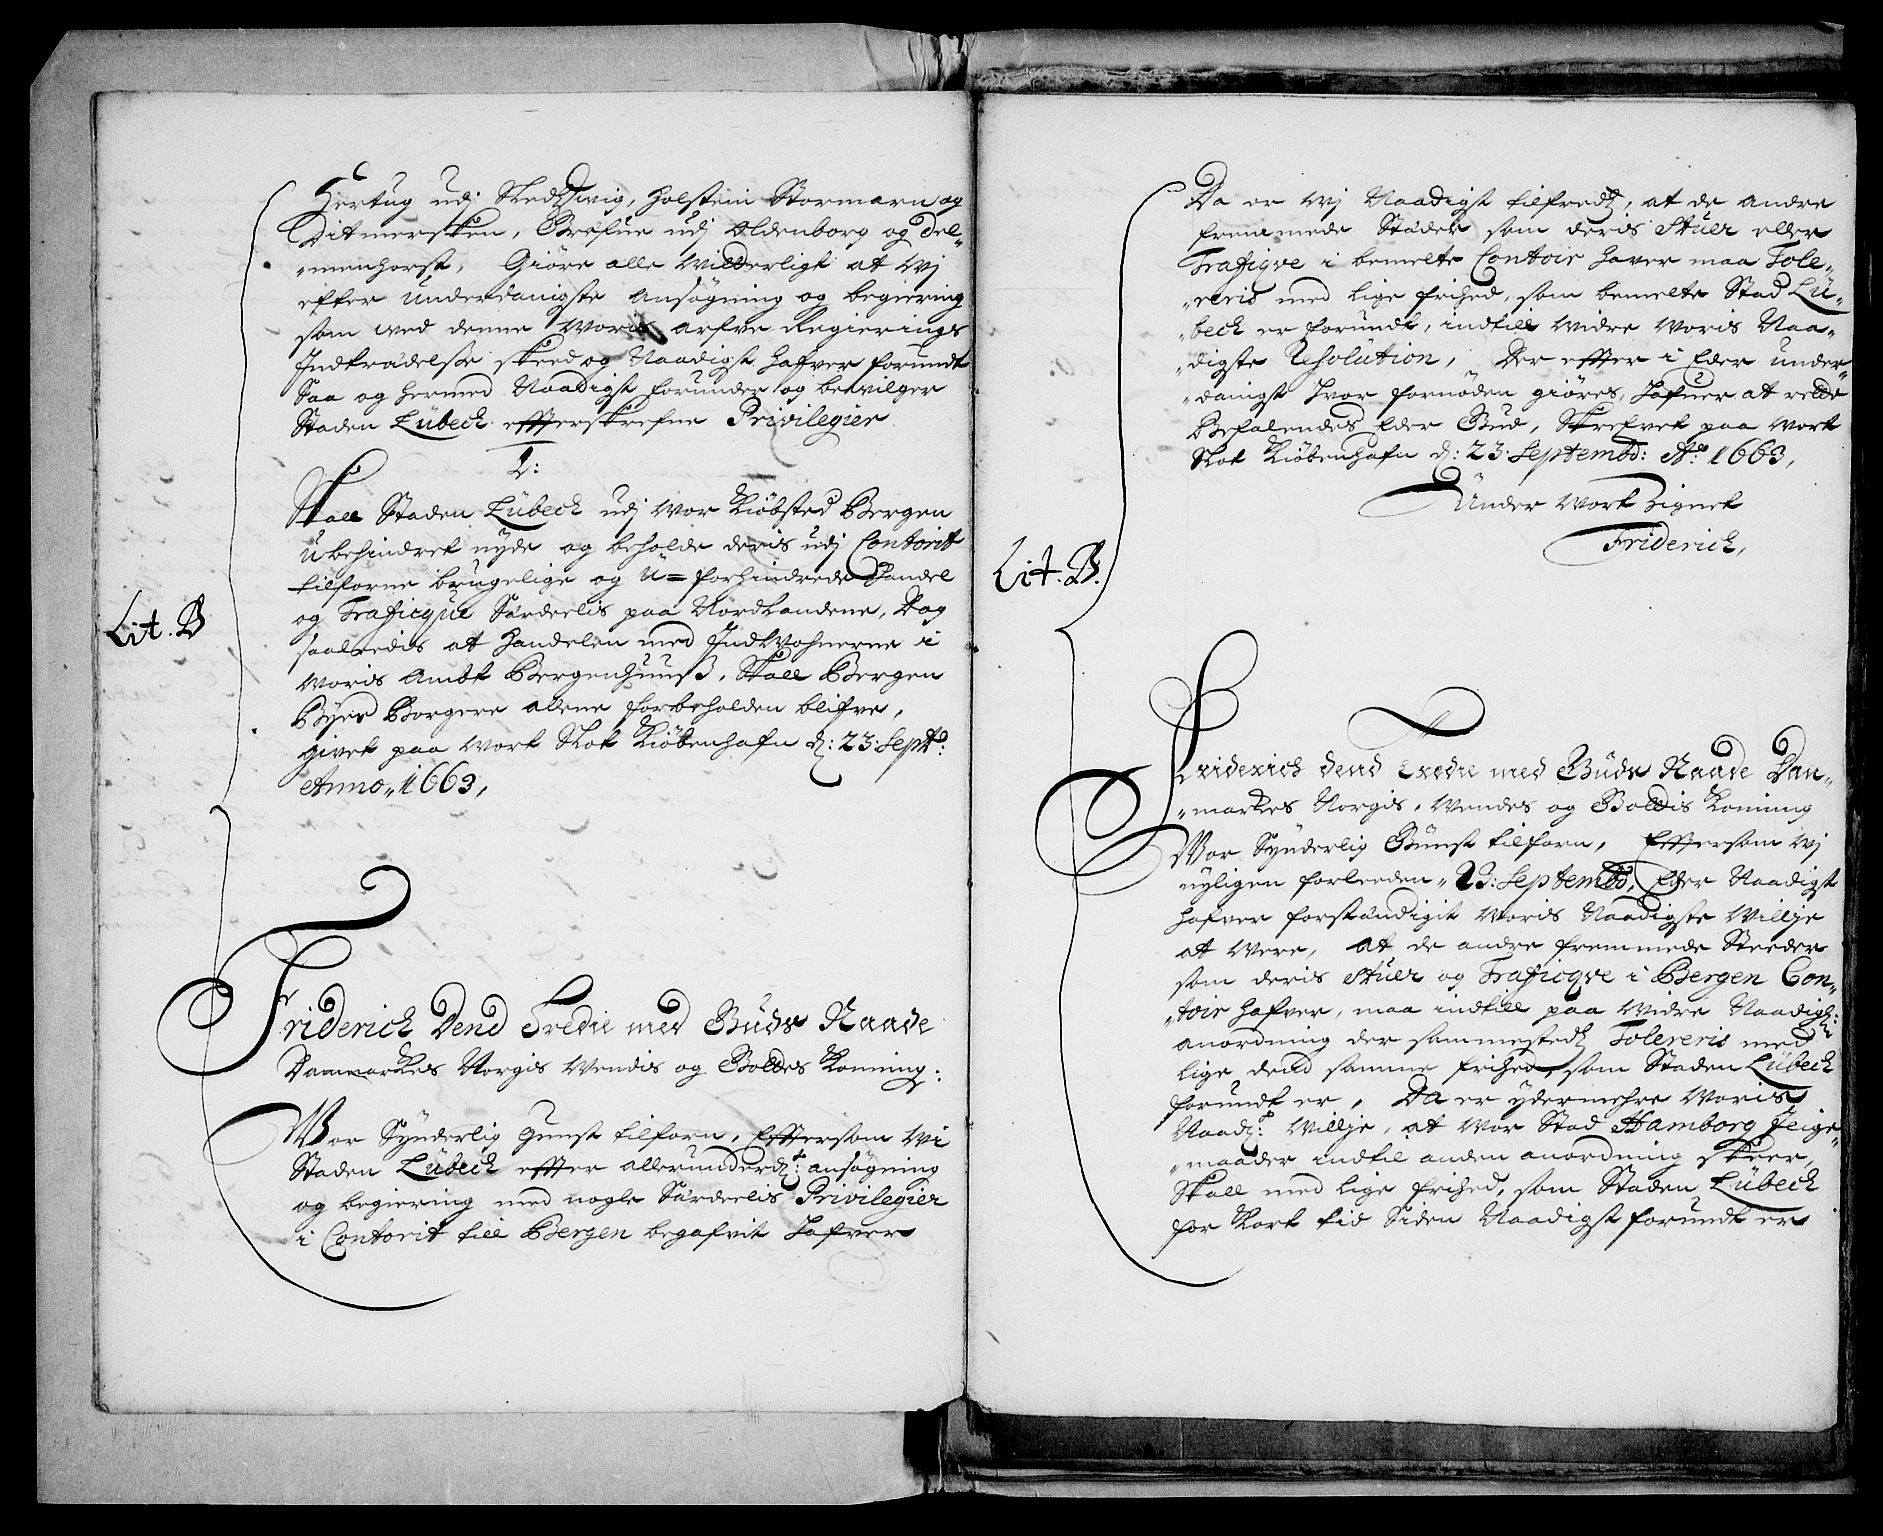 Hertug udj Sledzwig, Holstein Stormarn og
Ditmersken, Grefue udj Oldenborg og Del=
=menhorst, Giöre alle Witterligt at Wj
effter Underdanigste ansögning og begiering
som wed denne Woris arfve Regierings
Indtrædelsse skeed og Naadigst haffver forundt
Saa og hermed Naadigst forunder og bevilger
Staden Lübech effterskrefne Privilegier
I:
Skall Staden Lübech udj Wor Kiöbsted Bergen
ubehindret nyde og beholde deris udj Contorit
tilforne brugelige og u=forhindrede Handel
og Traficque Særdeelis paa Nordlandene, Dog
saaleedis at Handelen med Indwohnerne i
Woris Ambt Bergenhuuß, Skall Bergen
Byes Borgere alene forbeholden blifve,
givet paa Wort Slot Kiöbenhafn d: 23: Septb:
Anno 1663,
Lit. B
Friderich Dend Tredie med Guds Naade
Danmarckes Norgis Wendis og Gottes Koning:
Wor Synderlig gunst tilforn, Efftersom Wi
Staden Lübech effter allerunderd: ansögning
og begiering med nogle Særdeelis Privilegier
i Contorit till Bergen begafvit Hafver
Da er Wj Naadigst tilfreds, at de andre
fremmede Stæder som deris Stuer eller
Trafiqve i bemelte Contoir haver maa Tole=
=reris med lige frihed, som bemelte Stad Lü=
=bech er forundt, indtill Widre Woris Naa=
=digste Resolution, Der effter i Eder under=
=danigst hvor fornöden giöres, Hafuer at rette
Befalendes Eder Gud, Skrefvet paa Wort
Slot Kiöbenhafn d: 23: Septembr: Ao: 1663,
Under Wort Zignet
Friderich,
Lit. B.
Friderich dend Tredie med Guds Naade Dan=
=markes Norgis, Wendes og Gottis Koning
Wor Synderlig Gunst tilforn, Efftersom Wj
nyligen forleeden 23: Septembr, Eder Naadigst
hafver forstændigit Woris Naadigste Willje
at Were, at de andre fremmede Steeder
som deris Stuer og Traficqve i Bergen Con=
=toir hafver, maa indtill paa Widre Naadigst:
anordning der sammesteds Tolereris med
lige dend samme frihed, som Staden Lübech
forundt er, Da er ydermehre Woris
Naads: Willje, at Wor Stad Hamborg Ieige=
=maader indtil anden anordning skeer,
Skall med lige frihed, som Staden Lübech
for Kort tid Siden Naadigst forundt er